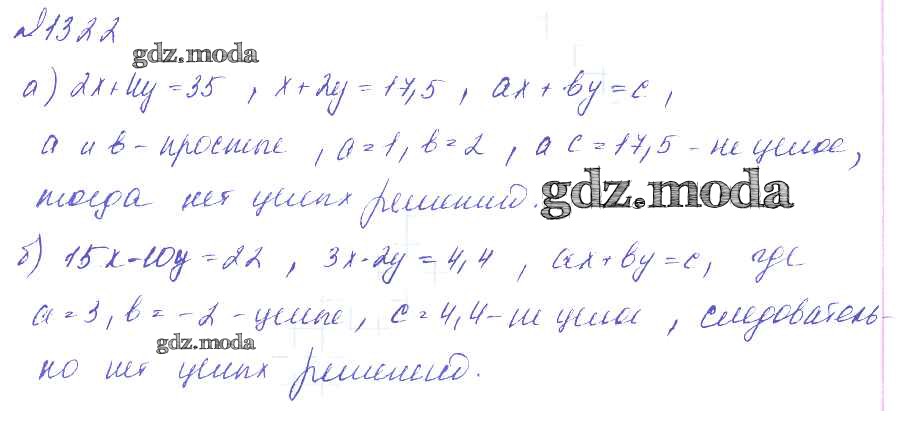 №1322
gdz.moda
а) 2x+4y=35, x+2y=17,5, ax+by=c,
а и в - простые, a=1, b=2, а c=17,5 - не целое,
тогда нет целых решений.
gdz.moda
б) 15x-10y=22, 3x-2y=4,4, ax+by=c, где
a=3, b=-2 - целые, c=4,4 - не целое, следователь-
gdz.moda
но нет целых решений.